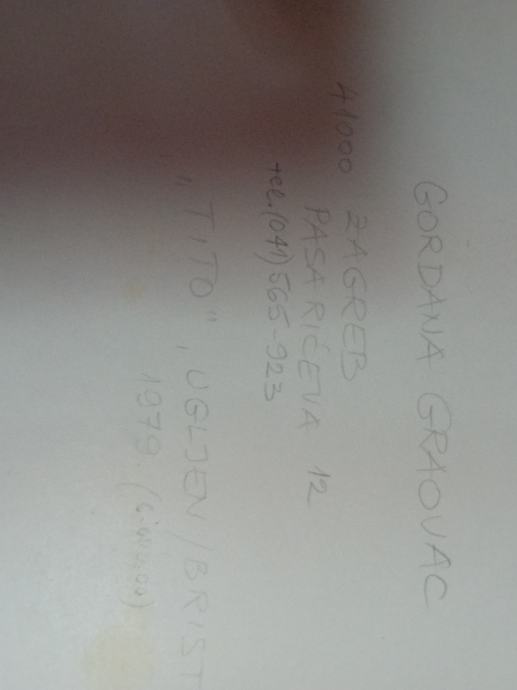 GORDANA GRAOVAC
41000 ZAGREB
PASARIĆEVA 12
tel. (041) 565-923
"TITO", UGLJEN / BRIST
1979.